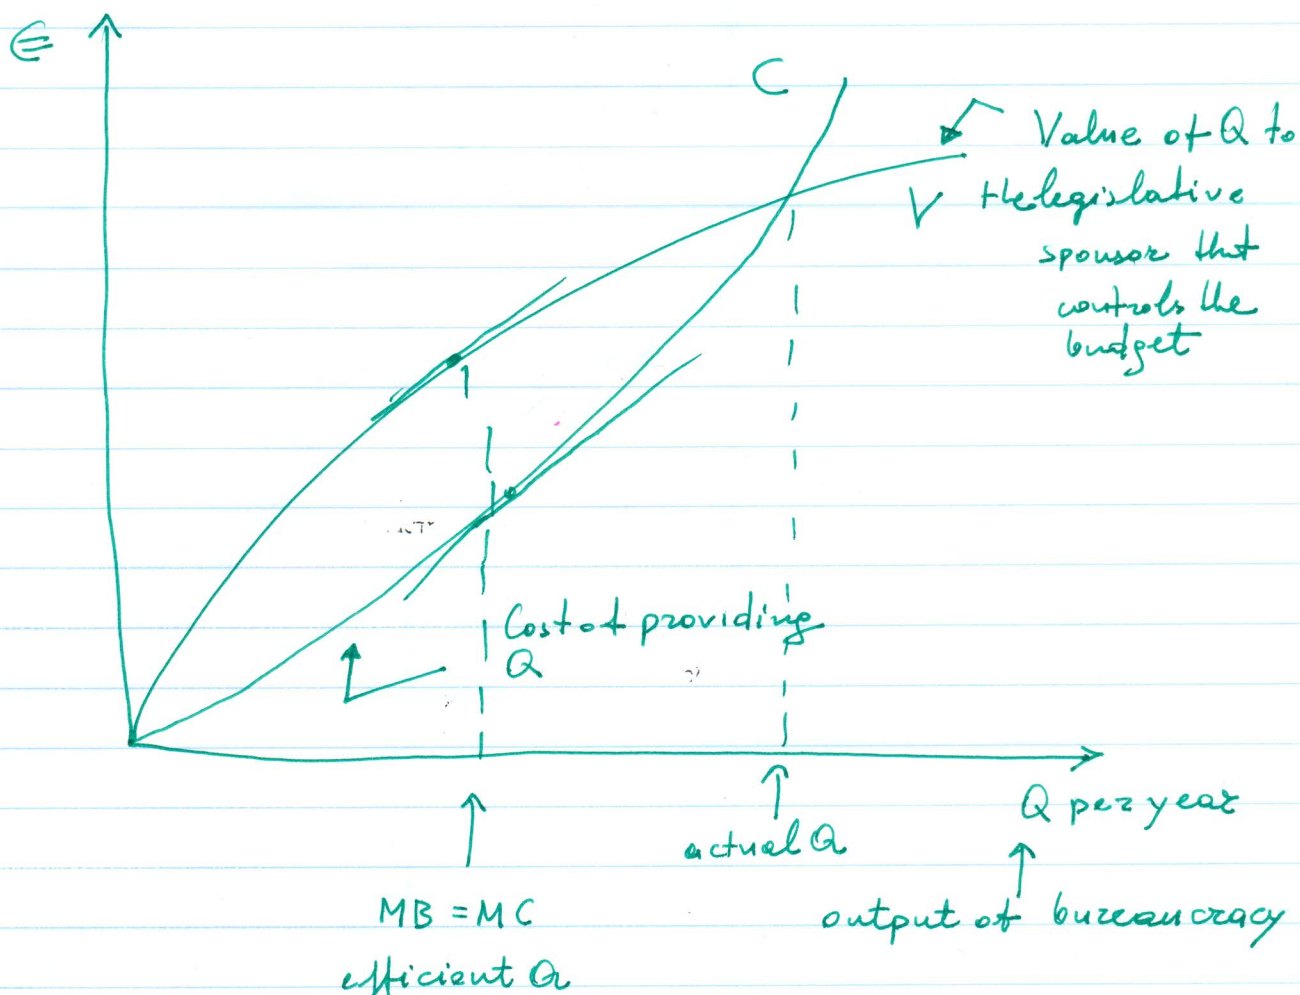 €
C
Value of Q to
V the legislative
sponsor that
controls the
budget
Cost of providing
Q
Q per year
actual Q
MB = MC
output of bureaucracy
efficient Q